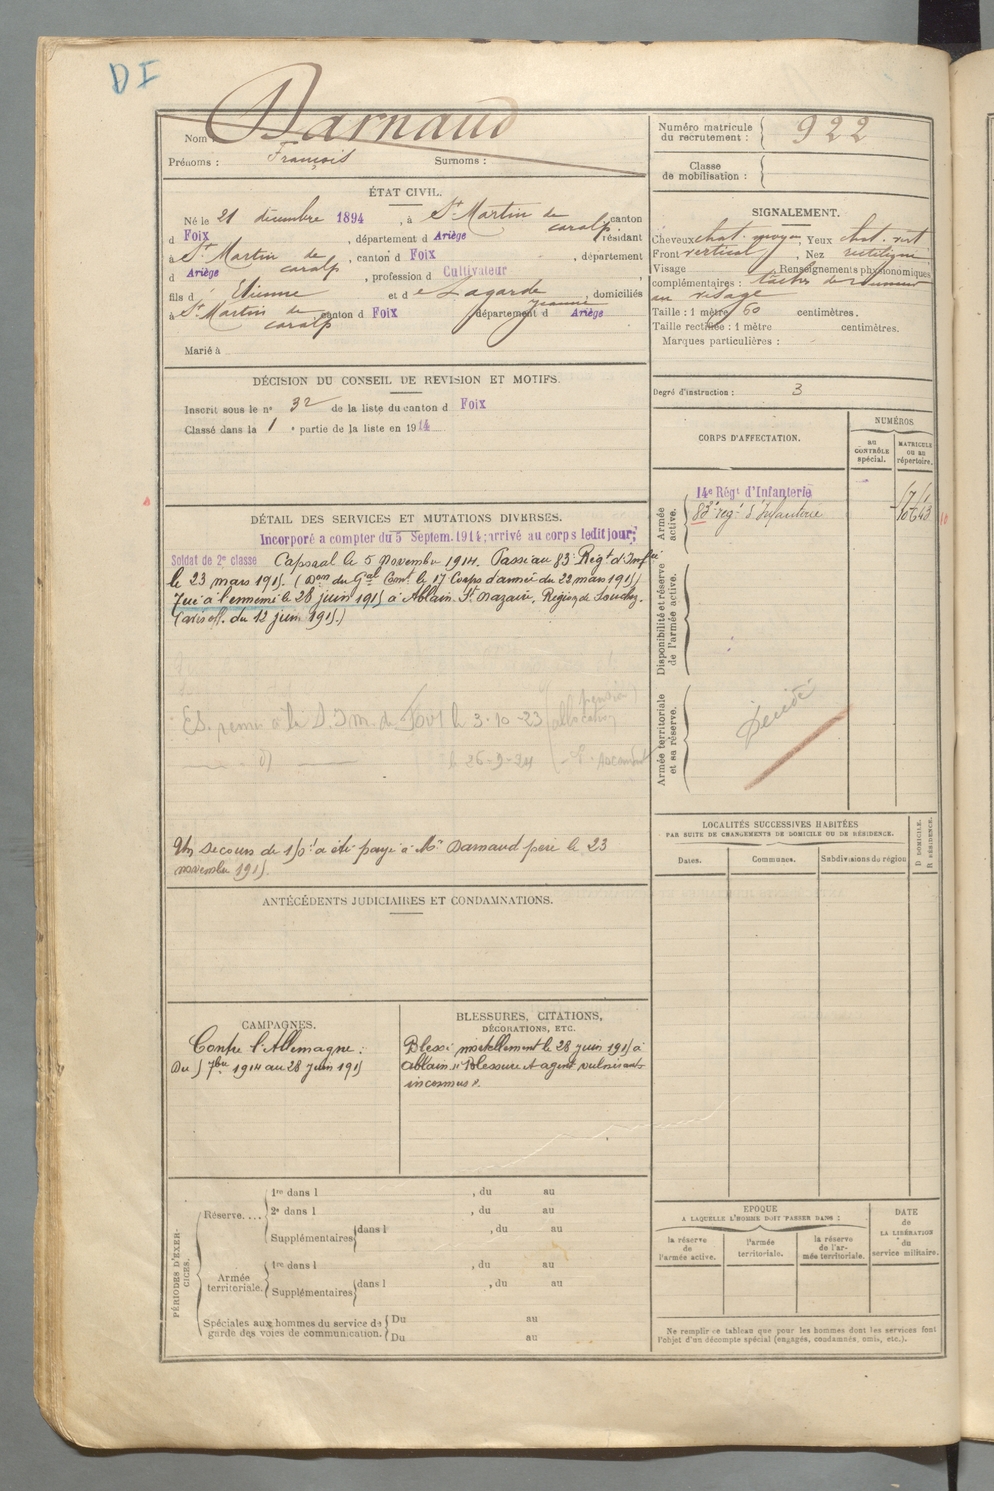 DI
Nom Darnaud
Prénoms : François Surnoms :
ÉTAT CIVIL.
Né le 21 décembre 1894, à St Martin de caralp, canton
d Foix, département d Ariège, résidant
à St Martin de caralp, canton d Foix, département
d Ariège, profession d Cultivateur
fils d' Etienne et de Lagarde Jeanne, domiciliés
à St Martin de caralp, canton d Foix département d Ariège
Marié à
DÉCISION DU CONSEIL DE REVISION ET MOTIFS.
Inscrit sous le no 32 de la liste du canton d Foix
Classé dans la 1e partie de la liste en 1914
DÉTAIL DES SERVICES ET MUTATIONS DIVERSES.
Incorporé a compter du 5 Septem. 1914; arrivé au corps ledit jour;
Soldat de 2e classe Caporal le 5 Novembre 1914. Passé au 83e Régt d'Infie
le 23 mars 1915. (Don du Gal Comt le 17 Corps d'armée du 22 mars 1915)
Tué à l'ennemi le 28 juin 1915 à Ablain St Nazaire, Région de Souchez.
(avis off. du 12 juin 1915.)
remis à la S.I.M. de le 3-10-23 (pension
le 26-9-24
Un Secours de 150f a été payé à Mr Darnaud père le 23
novembre 1915.
ANTÉCÉDENTS JUDICIAIRES ET CONDAMNATIONS.
CAMPAGNES.
Contre l'Allemagne :
Du 5 7bre 1914 au 28 Juin 1915
BLESSURES, CITATIONS,
DÉCORATIONS, ETC.
Blessé mortellement le 28 juin 1915 à
Ablain. "Blessure et agent vulnérants
inconnus".
PÉRIODES D'EXERCICES.
Réserve.... 1re dans l , du au
2e dans l , du au
Supplémentaires dans l , du au
Armée territoriale. 1re dans l , du au
Supplémentaires dans l , du au
Spéciales aux hommes du service de Du au
garde des voies de communication. Du au
Numéro matricule
du recrutement : 922
Classe
de mobilisation :
SIGNALEMENT.
Cheveux chat. moyen, Yeux chat. vert
Front vertical, Nez rectiligne
Visage Renseignements physionomiques
complémentaires : taches de rousseur
au visage
Taille : 1 mètre 60 centimètres.
Taille rectifiée : 1 mètre centimètres.
Marques particulières :
Degré d'instruction : 3
CORPS D'AFFECTATION.
NUMÉROS
au
CONTRÔLE
spécial.
MATRICULE
OU AU
répertoire.
Armée
active.
14e Régt d'Infanterie
83e régt d'Infanterie
Disponibilité et réserve
de l'armée active.
Armée territoriale
et sa réserve.
décédé
LOCALITÉS SUCCESSIVES HABITÉES
PAR SUITE DE CHANGEMENTS DE DOMICILE OU DE RÉSIDENCE.
Dates. Communes. Subdivisions de région
D DOMICILE.
R RÉSIDENCE.
EPOQUE
A LAQUELLE L'HOMME DOIT PASSER DANS :
la réserve
de
l'armée active.
l'armée
territoriale.
la réserve
de l'ar-
mée territoriale.
DATE
de
LA LIBÉRATION
du
service militaire.
Ne remplir ce tableau que pour les hommes dont les services font
l'objet d'un décompte spécial (engagés, condamnés, omis, etc.).